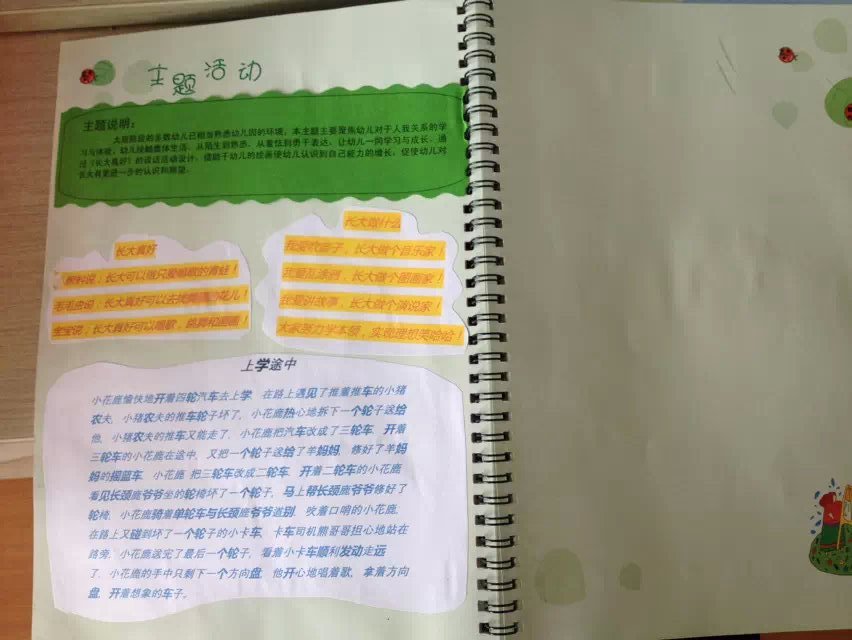 主题活动
主题说明：
大班阶段的多数幼儿已相当熟悉幼儿园的环境，本主题主要聚焦幼儿对于人我关系的学
习与体验，幼儿接触群体生活，从陌生到熟悉，从羞怯到勇于表达，让幼儿一同学习与成长，通
过《长大真好》的谈话活动设计，借助于幼儿的绘画使幼儿认识到自己能力的增长，促使幼儿对
长大有更进一步的认识和期望。
长大真好
蝌蚪说：长大可以做只爱唱歌的青蛙！
毛毛虫说：长大真好可以去找美丽的花儿！
宝宝说：长大真好可以唱歌，跳舞和画画！
长大做什么
我爱吹笛子，长大做个音乐家！
我爱乱涂画，长大做个图画家！
我爱讲故事，长大做个演说家！
大家努力学本领，实现理想笑哈哈！
上学途中
小花鹿愉快地开着四轮汽车去上学，在路上遇见了推着推车的小猪
农夫，小猪农夫的推车轮子坏了，小花鹿热心地拆下一个轮子送给
他，小猪农夫的推车又能走了，小花鹿把汽车改成了三轮车，开着
三轮车的小花鹿在途中，又把一个轮子送给了羊妈妈，修好了羊妈
妈的摇篮车，小花鹿 把三轮车改成二轮车，开着二轮车的小花鹿
看见长颈鹿爷爷坐的轮椅坏了一个轮子，马上帮长颈鹿爷爷修好了
轮椅，小花鹿骑着单轮车与长颈鹿爷爷道别，吹着口哨的小花鹿，
在路上又碰到坏了一个轮子的小卡车，卡车司机熊哥哥担心地站在
路旁，小花鹿送完了最后一个轮子，看着小卡车顺利发动走远
了，小花鹿的手中只剩下一个方向盘，他开心地唱着歌，拿着方向
盘，开着想象的车子。